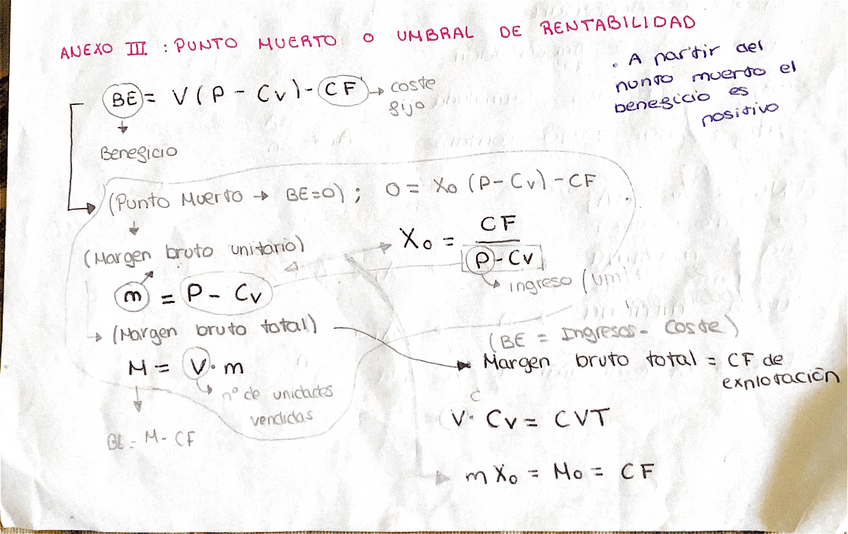 ANEXO III : PUNTO MUERTO O UMBRAL DE RENTABILIDAD
. A partir del
punto muerto el
beneficio es
positivo
BE = V(P - Cv) - CF → coste
fijo
Beneficio
(Punto Muerto → BE=0) ; 0 = X₀ (P-Cv) - CF
(Margen bruto unitario)
X₀ = CF / P-Cv
m = P - Cv
ingreso
→ (Margen bruto total)
M = V·m
nº de unidades
vendidas
BE = M - CF
(BE = Ingresos - Coste)
Margen bruto total = CF de
explotación
V · Cv = CVT
m X₀ = M₀ = CF